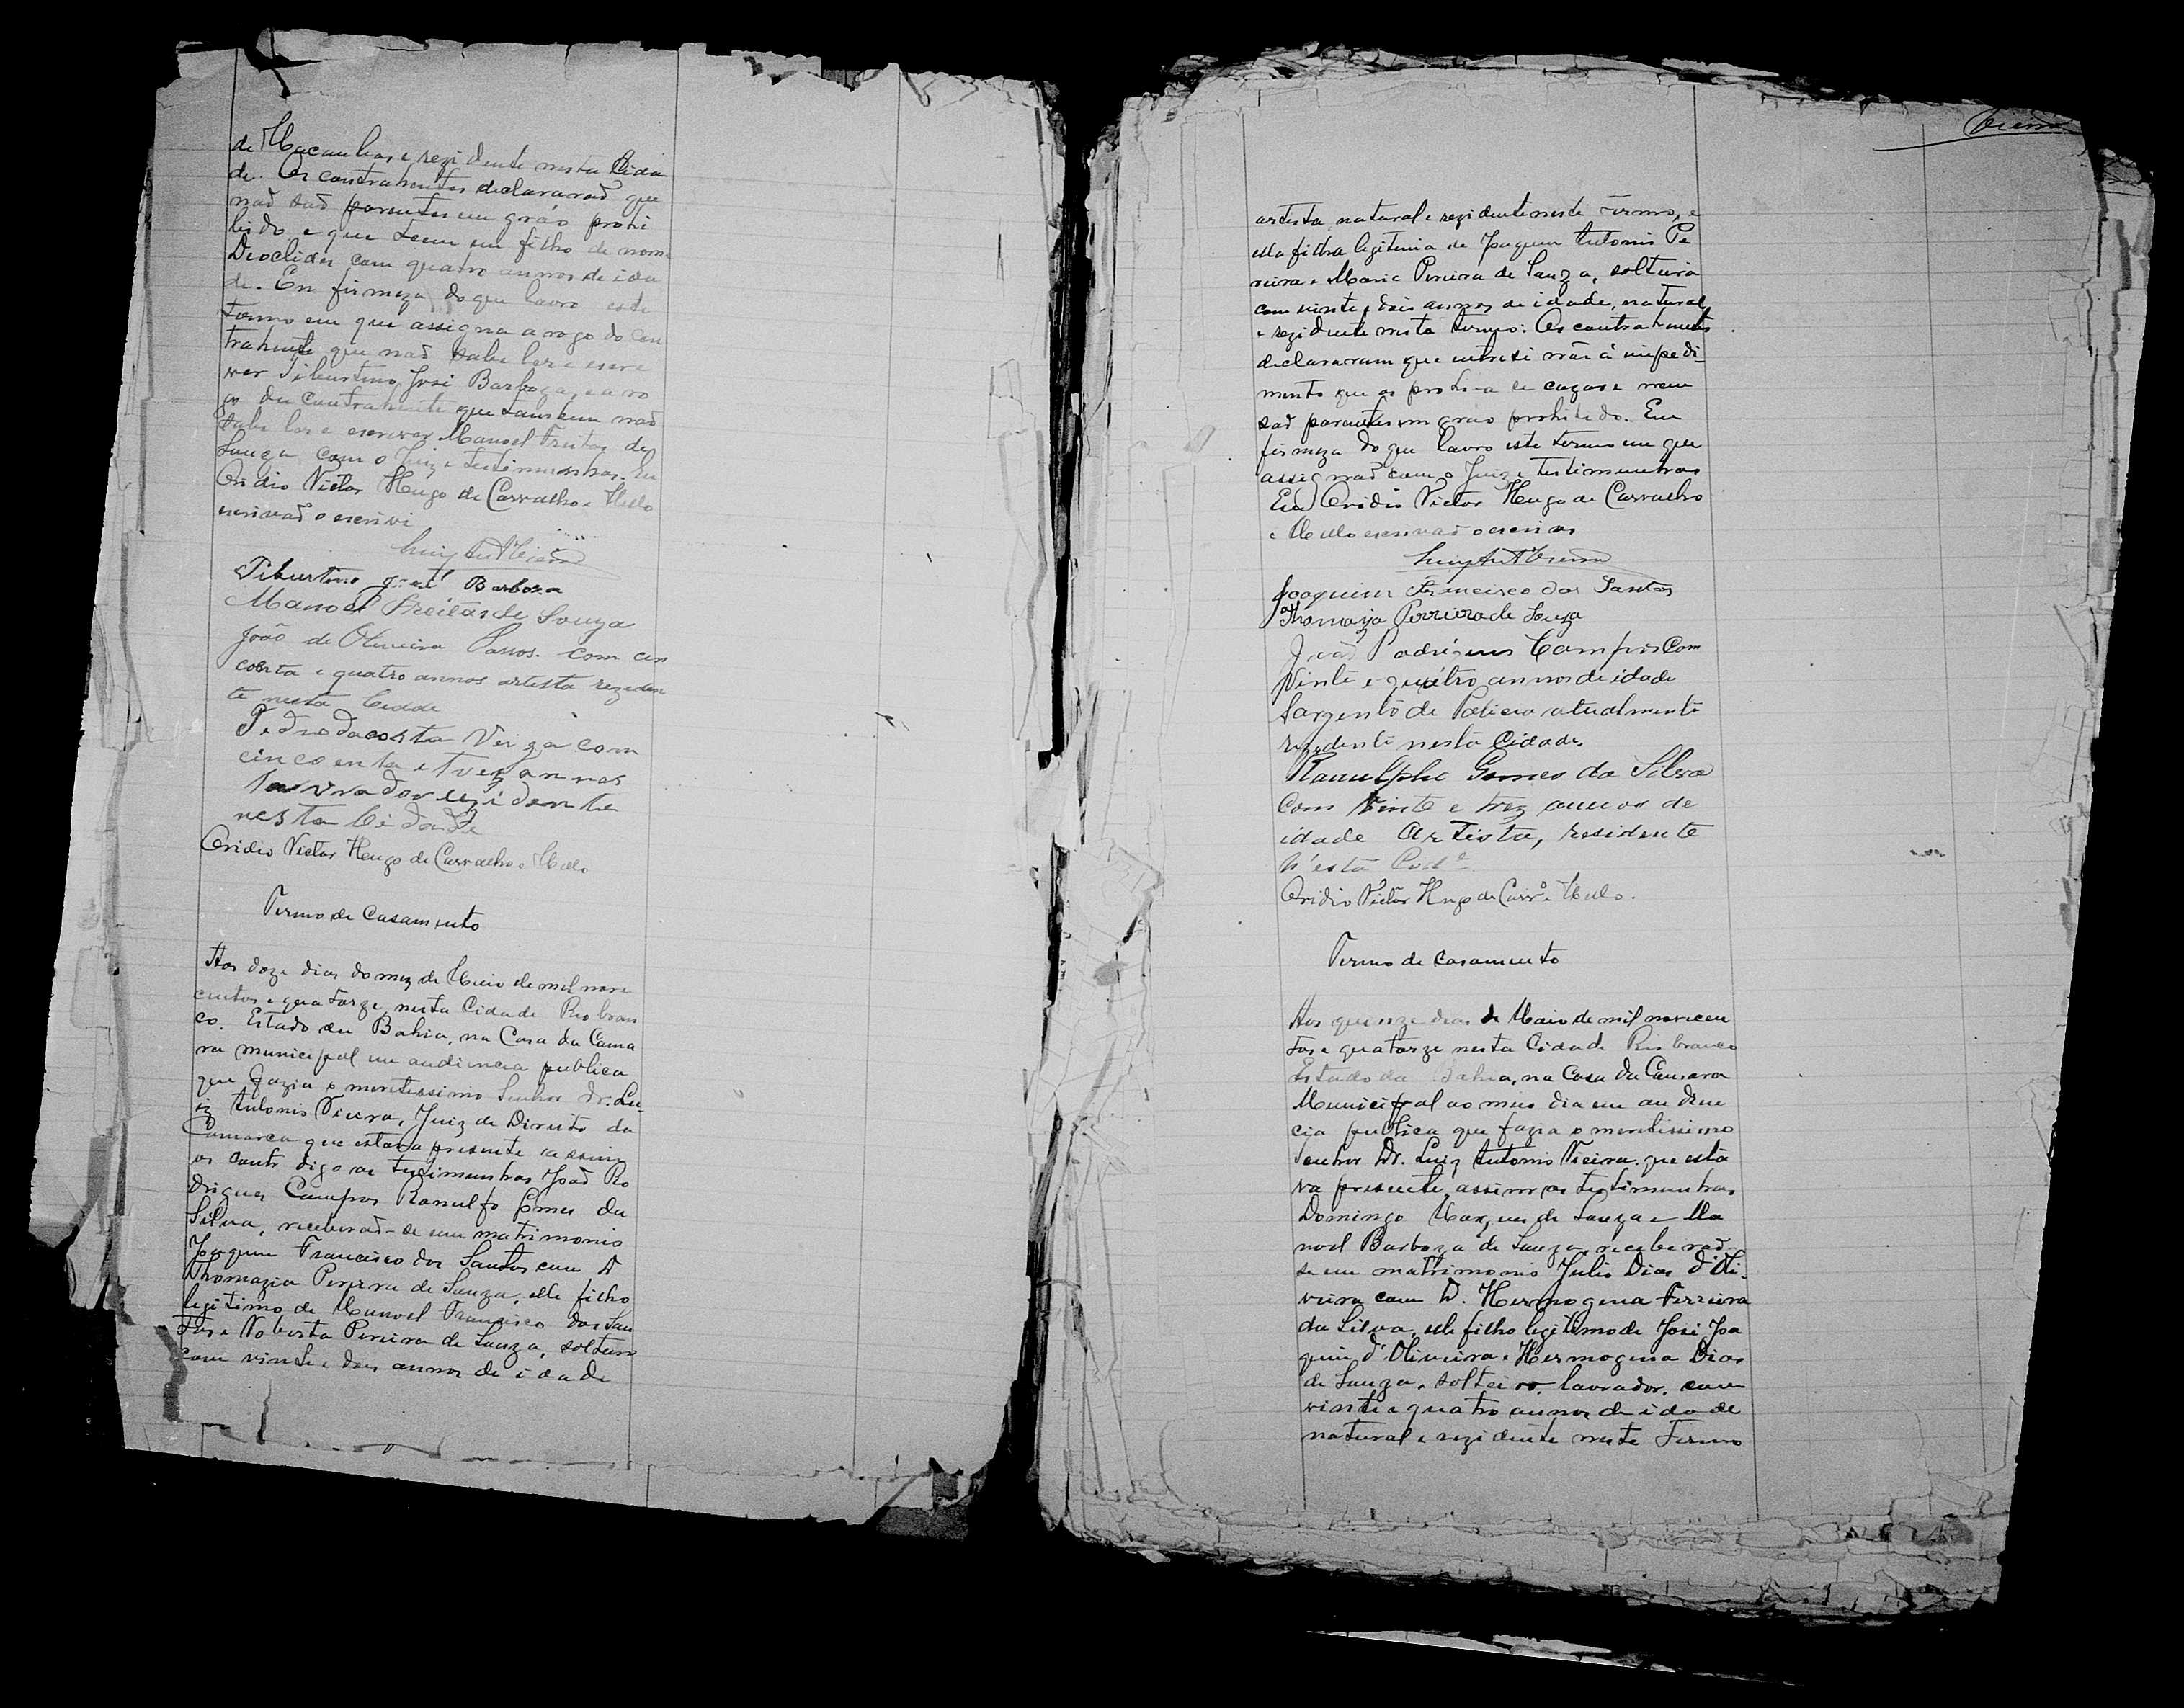 de Macaubas e rezidente nesta Cida
de. Os contrahentes declararaõ que
naõ saõ parentes em gráo prohi
bido e que teem um filho de nome
Deoclides com quatro annos de ida
de. Em firmeza do que lavro este
termo em que assigna a rogo do con
trahente que naõ sabe ler e escre
ver Tiburtino José Barboza, e a ro
go da contrahente que tambem naõ
sabe ler e escrever Manoel Freitas de
Souza com o Juiz e testimunhas. Eu
Ovidio Victor Hugo de Carvalho e Mello
escrivaõ o escrivi
Luiz Ant Vieira
Tiburtino José Barboza
Manoel Freitas de Souza
João de Oliveira Passos. com cin
coenta e quatro annos artista rezeden
te nesta Cidade
Pedro da costa Veiga com
cincoenta e trez annos
lavrador rezidente
nesta Cidade
Ovidio Victor Hugo de Carvalho e Mello
Termo de Casamento
Aos doze dias do mez de Maio de mil nove
centos e quatorze, nesta Cidade Rio bran
co. Estado da Bahia, na Casa da Cama
ra municipal em audiencia publica
que fazia o meretissimo Senhor Dr. Lu-
iz Antonio Vieira, Juiz de Direito da
Comarca que estava presente e assim
os contr digo as testimunhas Joaõ Ro
drigues Campos Ranulfo Gomes da
Silva, receberaõ-se em matrimonio
Joaquim Francisco dos Santos com D
Thomazia Pereira de Souza, elle filho
legitimo de Manoel Francisco dos San
tos e Roberta Pereira de Souza, solteiro
com vinte e dous annos de idade
Vieira
artista natural e rezidente neste Termo, e
ella filha legitima de Joaquim Antonio Pe
reira e Maria Pereira de Souza, solteira
com vinte e dois annos de idade, natural
e rezidente nesta termo: Os contrahentes
declararam que entre si não á impedi-
mento que os prohiba de cazar e nem
saõ parentes em gráo prohibido. Em
firmeza do que lavro este termo em que
assignaõ com o Juiz e testimunhas
Eu Ovidio Victor Hugo de Carvalho
e Mello escrivaõ o escrivi
Luiz Ant Vieira
Joaquim Francisco dos Santos
Thomazia Perriera de Souza
Joaõ Rodrigues Campos Com
Vinte e quatro annos de idade
Sargento de Policia atualmente
rezedente nesta Cidade,
Ranulpho Gomes da Silva
Com Vinte e trez annos de
idade Artista, residente
n'esta Cid.e
Ovidio Victor Hugo de Carv.o e Mello.
Termo de Casamento
Aos quinze dias de Maio de mil novicen
tos e quatorze nesta Cidade Rio branco
Estado da Bahia, na Casa da Camara
Municipal ao meio dia em audien
cia publica que fazia o meretissimo
Senhor Dr. Luiz Antonio Vieira que esta
va presente, assim as testimunhas
Domingo Marques de Souza e Ma
noel Barboza de Souza, receberaõ-
se em matrimonio Julio Dias d'Oli-
veira com D. Hermogena Ferreira
da Silva, elle filho legitimo de José Joa
quim d'Oliveira e Hermogena Dias
de Souza, solteiro, lavrador, com
vinte e quatro annos de idade
natural e rezidente neste Termo